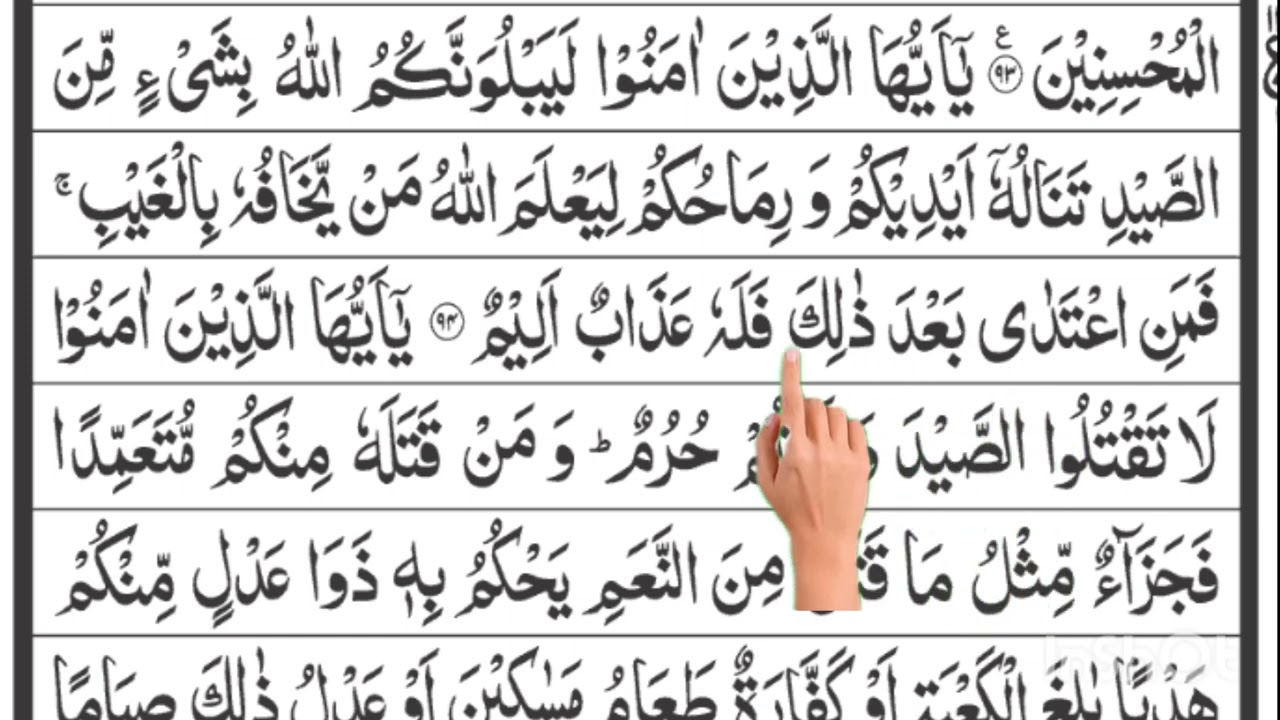 الْمُحْسِنِيْنَ ۹۳ ع یٰۤاَیُّهَا الَّذِیْنَ اٰمَنُوْا لَیَبْلُوَنَّكُمُ اللّٰهُ بِشَیْءٍ مِّنَ
الصَّیْدِ تَنَالُهٗۤ اَیْدِیْكُمْ وَ رِمَاحُكُمْ لِیَعْلَمَ اللّٰهُ مَنْ یَّخَافُهٗ بِالْغَیْبِ ۚ
فَمَنِ اعْتَدٰی بَعْدَ ذٰلِكَ فَلَهٗ عَذَابٌ اَلِیْمٌ ۹۴ یٰۤاَیُّهَا الَّذِیْنَ اٰمَنُوْا
لَا تَقْتُلُوا الصَّیْدَ حُرُمٌ ؕ وَ مَنْ قَتَلَهٗ مِنْكُمْ مُّتَعَمِّدًا
فَجَزَآءٌ مِّثْلُ مَا مِنَ النَّعَمِ یَحْكُمُ بِهٖ ذَوَا عَدْلٍ مِّنْكُمْ
هَدْیًۢا بٰلِغَ الْكَعْبَةِ اَوْ كَفَّارَةٌ طَعَامُ مَسٰكِیْنَ اَوْ عَدْلُ ذٰلِكَ صِیَامًا
InShOt